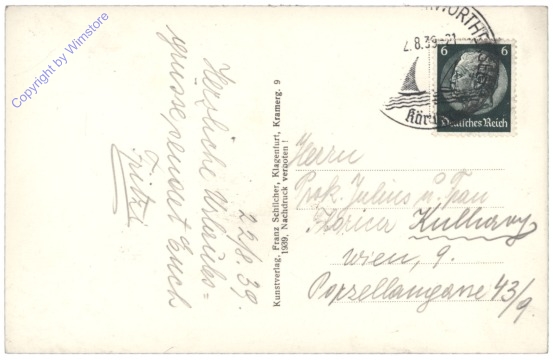 Copyright by Wimstore
22/8.39.
Herzliche Urlaubs=
grüsse sendet Euch
Fritzi
Kunstverlag, Franz Schilcher, Klagenfurt, Kramerg. 9
1939, Nachdruck verboten !
2.8.39-21
6 6
Deutsches Reich
Herrn
Prof. Julius u. Frau
Kulhavy
Wien, 9.
Porzellangasse 43/9